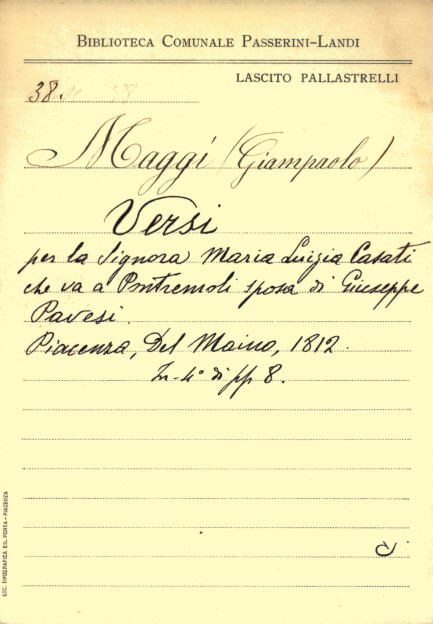 BIBLIOTECA COMUNALE PASSERINI-LANDI
LASCITO PALLASTRELLI
38.
Maggi (Giampaolo)
Versi
per la Signora Maria Luigia Casati
che va a Pontremoli sposa di Giuseppe
Pavesi.
Piacenza, Del Maino, 1812.
In-4° di pp 8.
SOC. TIPOGRAFICA ED. PORTA - PIACENZA